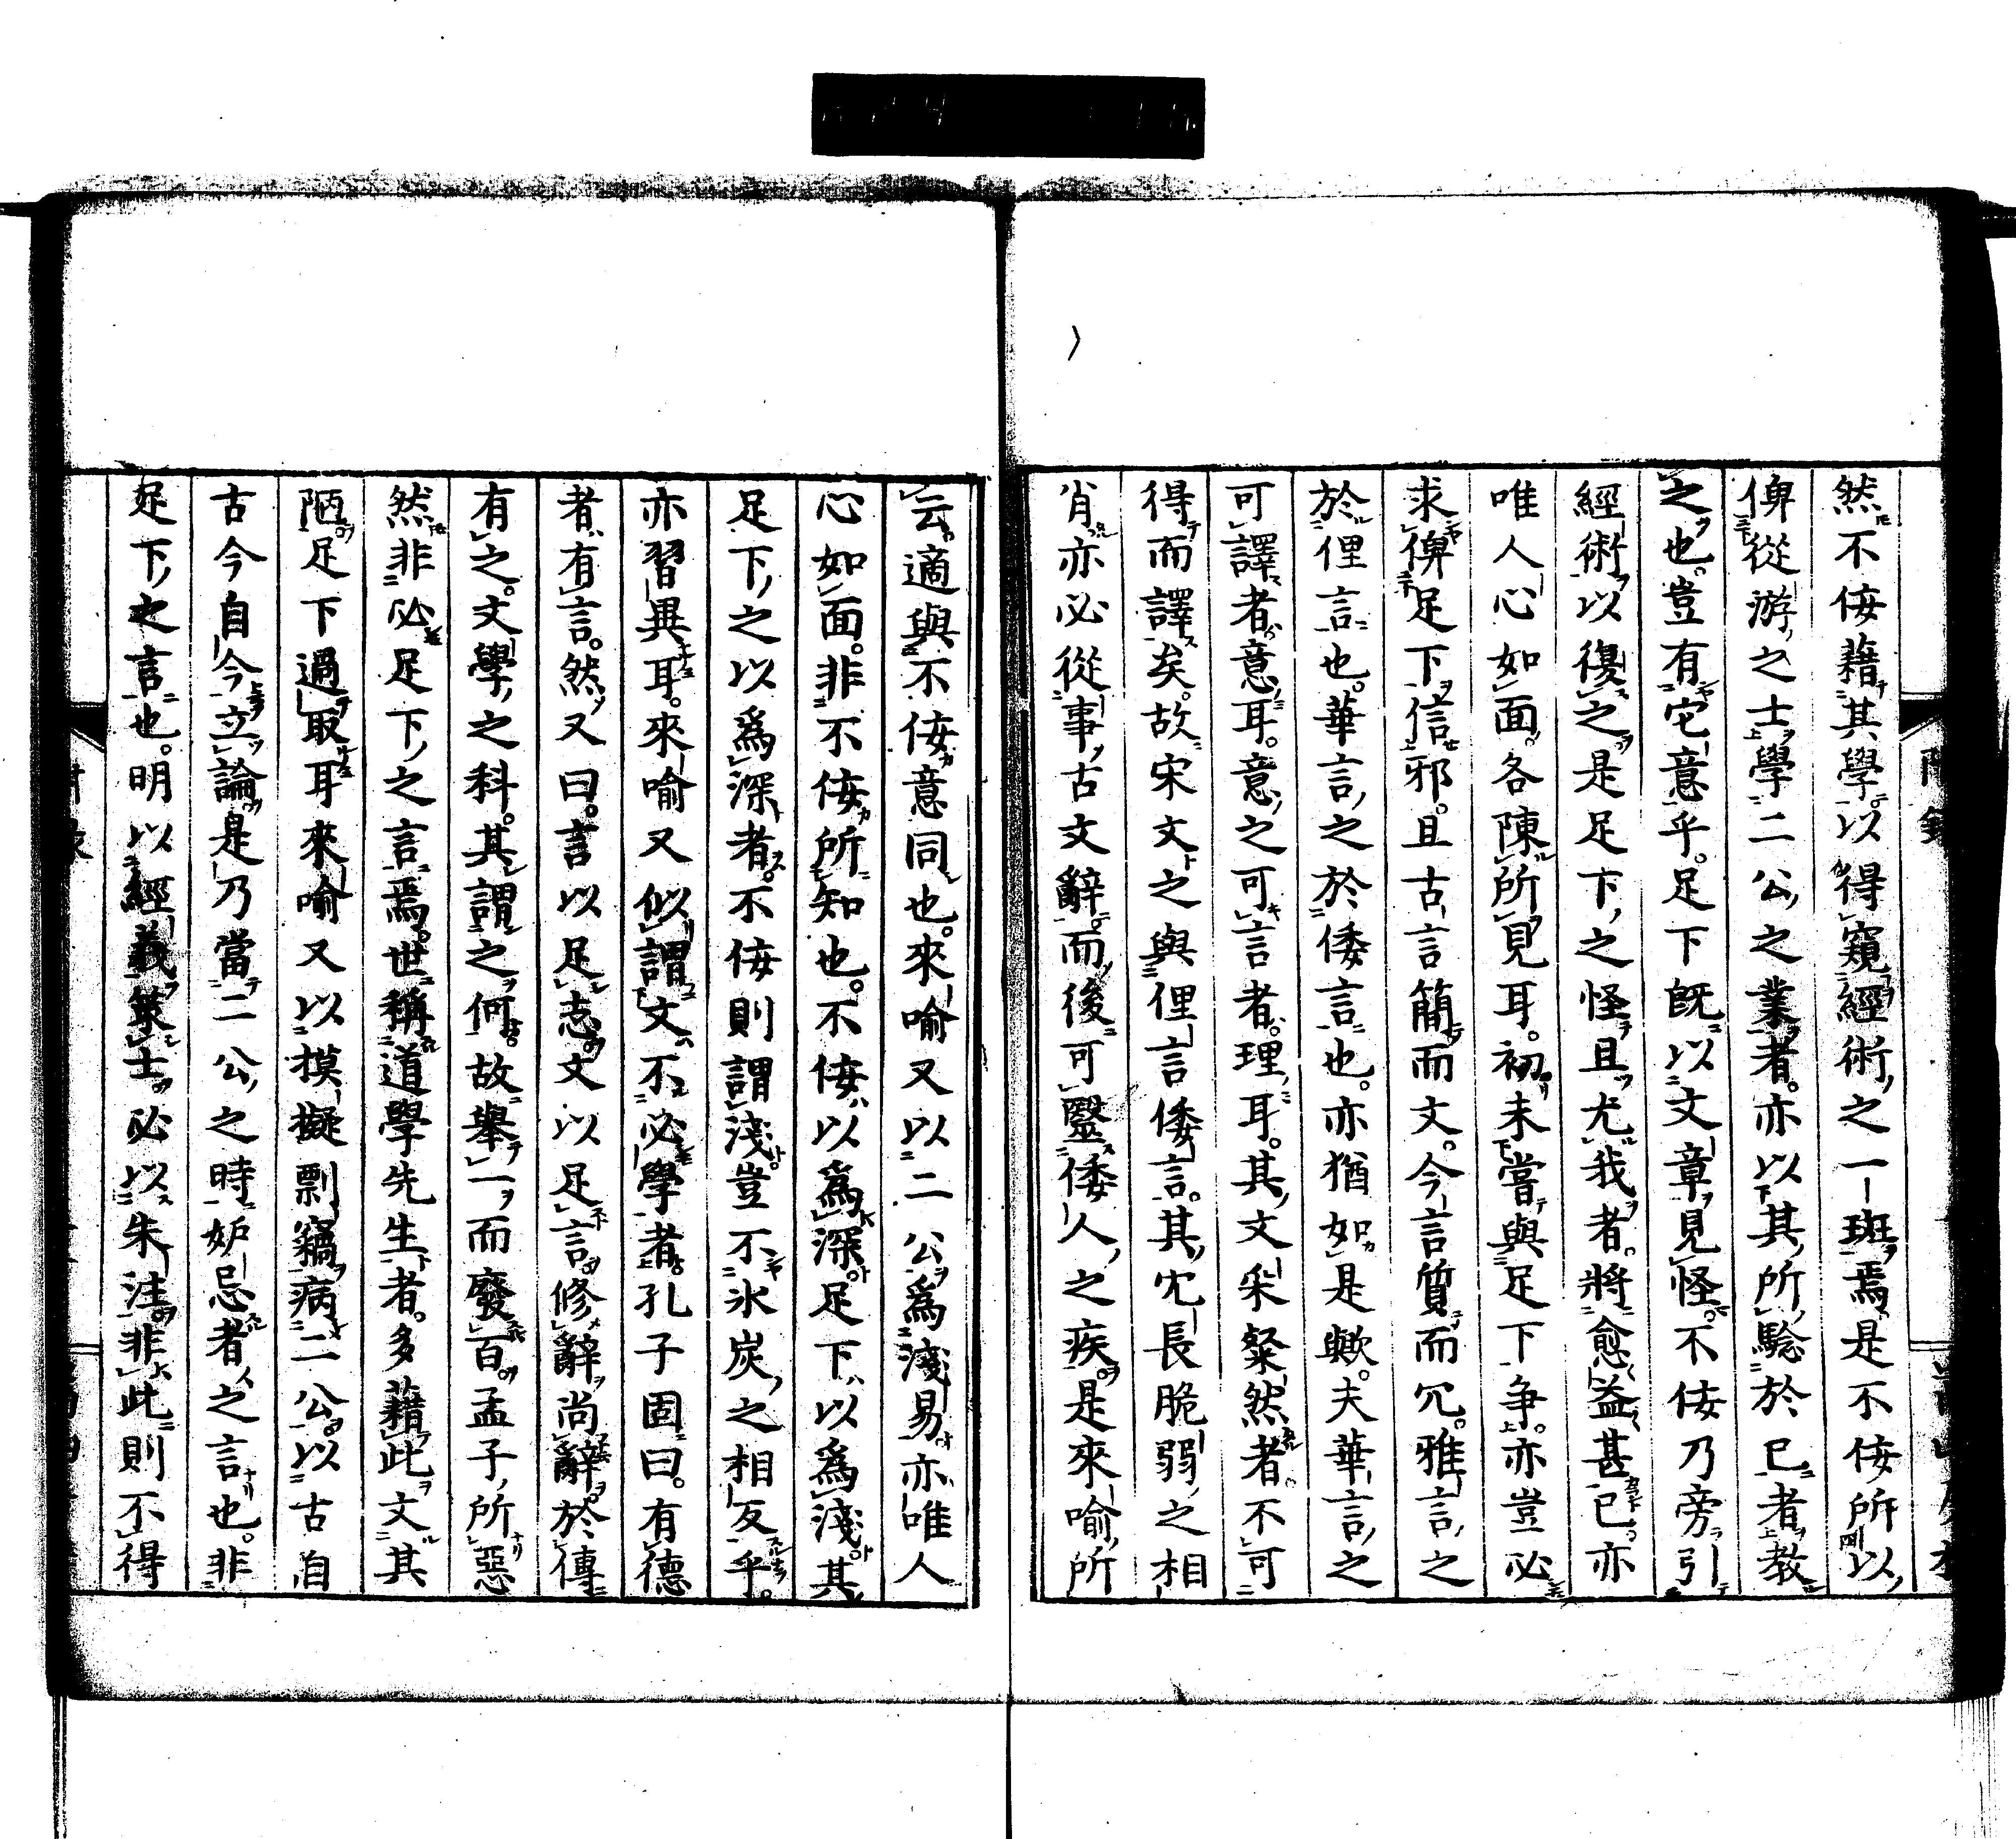 然不佞藉其學。以得窺經術之一斑焉。是不佞所以
俾從游之士學二公之業者。亦以其所騐於已者教
之也。豈有它意乎。足下既以文章見怪。不佞乃旁引
經術以復之。是足下之怪且尤我者。將愈益甚已。亦
唯人心如面。各陳所見耳。初未嘗與足下争。亦豈必
求俾足下信邪。且古言簡而文。今言質而冗。雅言之
於俚言也。華言之於倭言也。亦猶如是歟。夫華言之
可譯者。意耳。意之可言者。理耳。其文采粲然者。不可
得而譯矣。故宋文之與俚言倭言。其冘長脆弱之相
肖。亦必從事古文辭。而後可毉倭人之疾。是來喻所
云。適與不佞意同也。來喻又以二公爲淺易。亦唯人
心如面。非不佞所知也。不佞以爲深。足下以爲淺。其
足下之以爲深者。不佞則謂淺。豈不氷炭之相反乎。
亦習異耳。來喻又似謂文不必學者。孔子固曰。有德
者有言。然又曰。言以足志。文以足言。修辭尚辭。於傳
有之。文學之科。其謂之何。故舉一而廢百。孟子所惡。
然非必足下之言焉。世稱道學先生者。多藉此文其
陋。足下過取耳。來喻又以摸擬剽竊病二公。以古自
古今自今立論。是乃當二公之時妬忌者之言也。非
足下之言也。明以經義策士。必以朱注。非此則不得
附錄